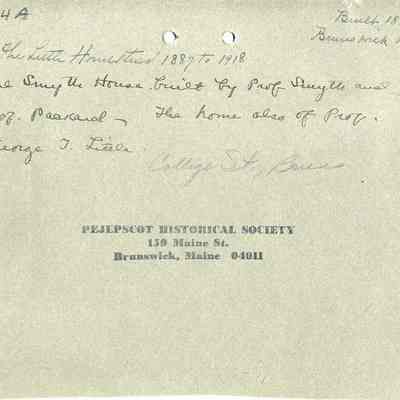 4A
Built 18
Brunswick
The Little Homestead 1887 to 1918
Smyth House built by Prof Smyth and
Packard - The home also of Prof.
George T. Little.
College St, Bruns
PEJEPSCOT HISTORICAL SOCIETY
159 Maine St.
Brunswick, Maine 04011